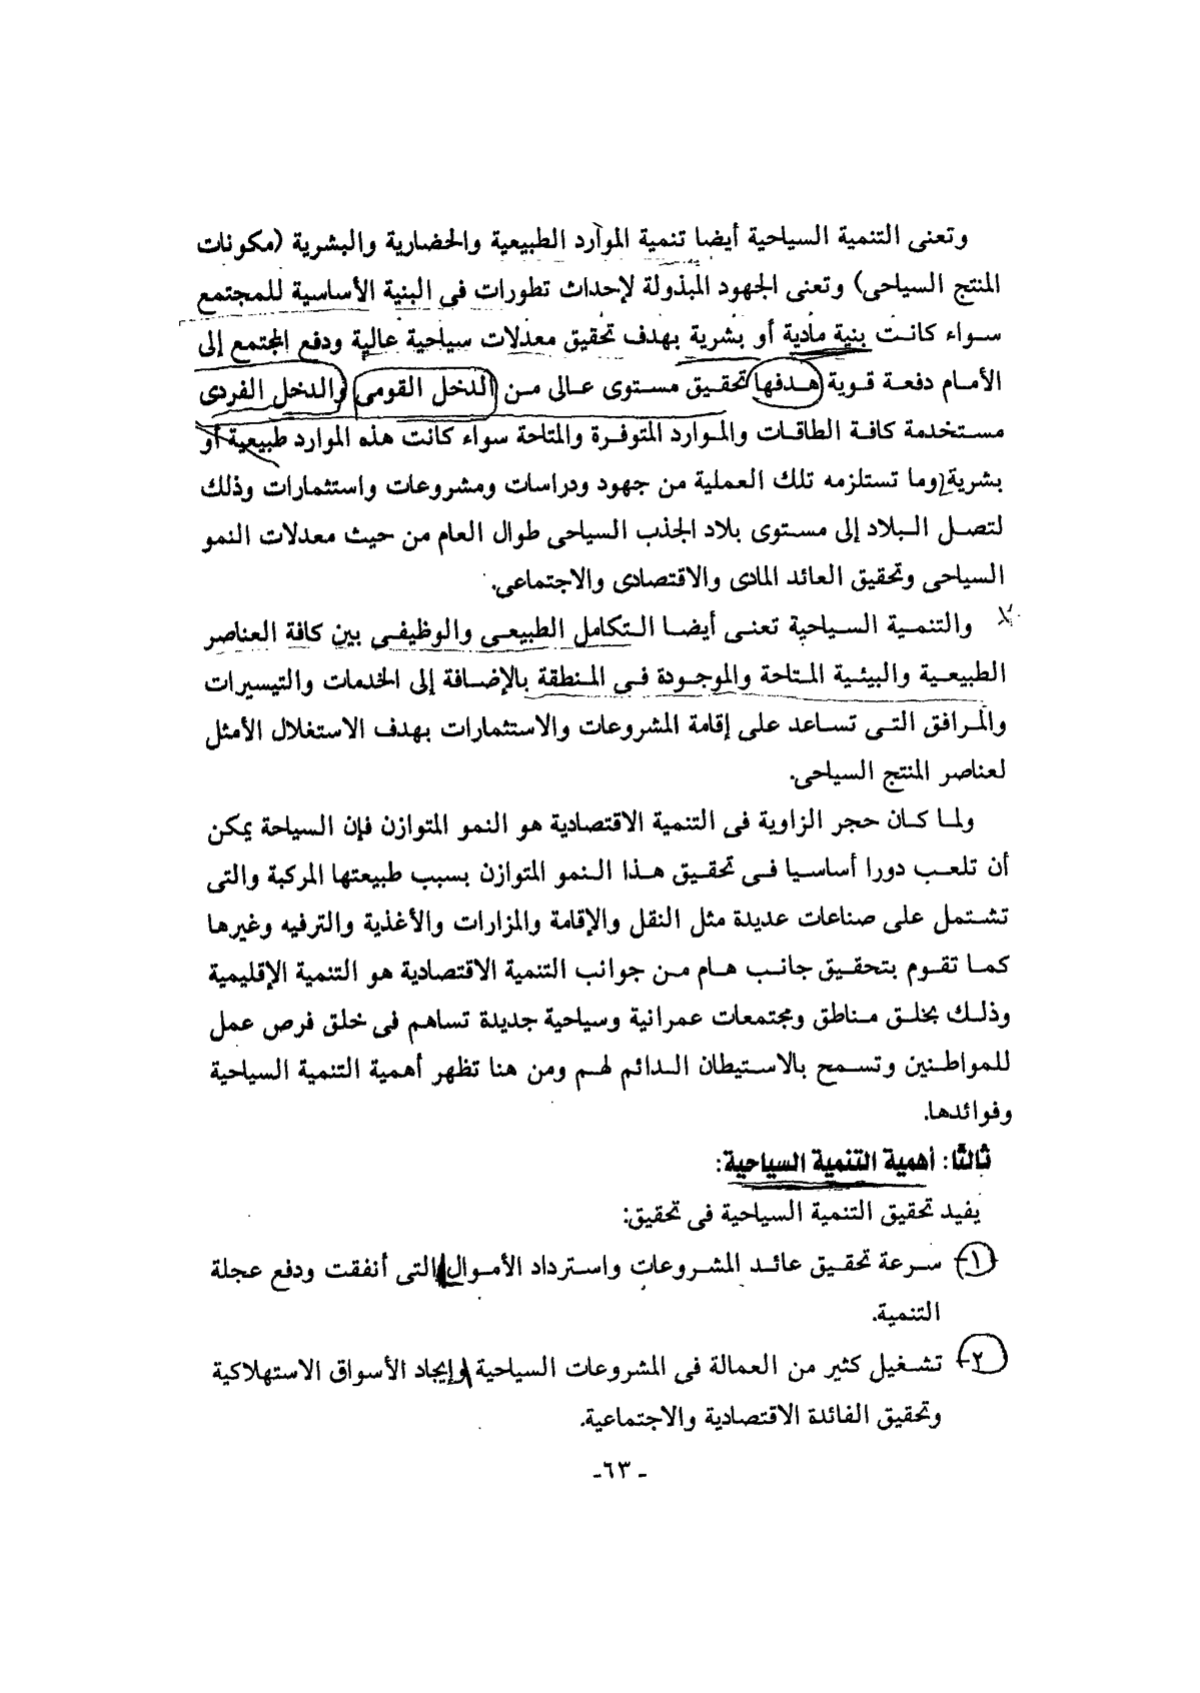 وتعنى التنمية السياحية أيضا تنمية الموارد الطبيعية والحضارية والبشرية (مكونات
المنتج السياحى) وتعنى الجهود المبذولة لإحداث تطورات فى البنية الأساسية للمجتمع
سواء كانت بنية مادية أو بشرية بهدف تحقيق معدلات سياحية عالية ودفع المجتمع إلى
الأمام دفعة قوية هدفها تحقيق مستوى عالى من الدخل القومى والدخل الفردى
مستخدمة كافة الطاقات والموارد المتوفرة والمتاحة سواء كانت هذه الموارد طبيعية أو
بشرية وما تستلزمه تلك العملية من جهود ودراسات ومشروعات واستثمارات وذلك
لتصل البلاد إلى مستوى بلاد الجذب السياحى طوال العام من حيث معدلات النمو
السياحى وتحقيق العائد المادى والاقتصادى والاجتماعى.
والتنمية السياحية تعنى أيضا التكامل الطبيعى والوظيفى بين كافة العناصر
الطبيعية والبيئية المتاحة والموجودة فى المنطقة بالإضافة إلى الخدمات والتيسيرات
والمرافق التى تساعد على إقامة المشروعات والاستثمارات بهدف الاستغلال الأمثل
لعناصر المنتج السياحى.
ولما كان حجر الزاوية فى التنمية الاقتصادية هو النمو المتوازن فإن السياحة يمكن
أن تلعب دورا أساسيا فى تحقيق هذا النمو المتوازن بسبب طبيعتها المركبة والتى
تشتمل على صناعات عديدة مثل النقل والإقامة والمزارات والأغذية والترفيه وغيرها
كما تقوم بتحقيق جانب هام من جوانب التنمية الاقتصادية هو التنمية الإقليمية
وذلك بخلق مناطق ومجتمعات عمرانية وسياحية جديدة تساهم فى خلق فرص عمل
للمواطنين وتسمح بالاستيطان الدائم لهم ومن هنا تظهر أهمية التنمية السياحية
وفوائدها.
ثالثًا: أهمية التنمية السياحية:
يفيد تحقيق التنمية السياحية فى تحقيق:
١- سرعة تحقيق عائد المشروعات واسترداد الأموال التى أنفقت ودفع عجلة
التنمية.
٢- تشغيل كثير من العمالة فى المشروعات السياحية وإيجاد الأسواق الاستهلاكية
وتحقيق الفائدة الاقتصادية والاجتماعية.
- ٦٣-